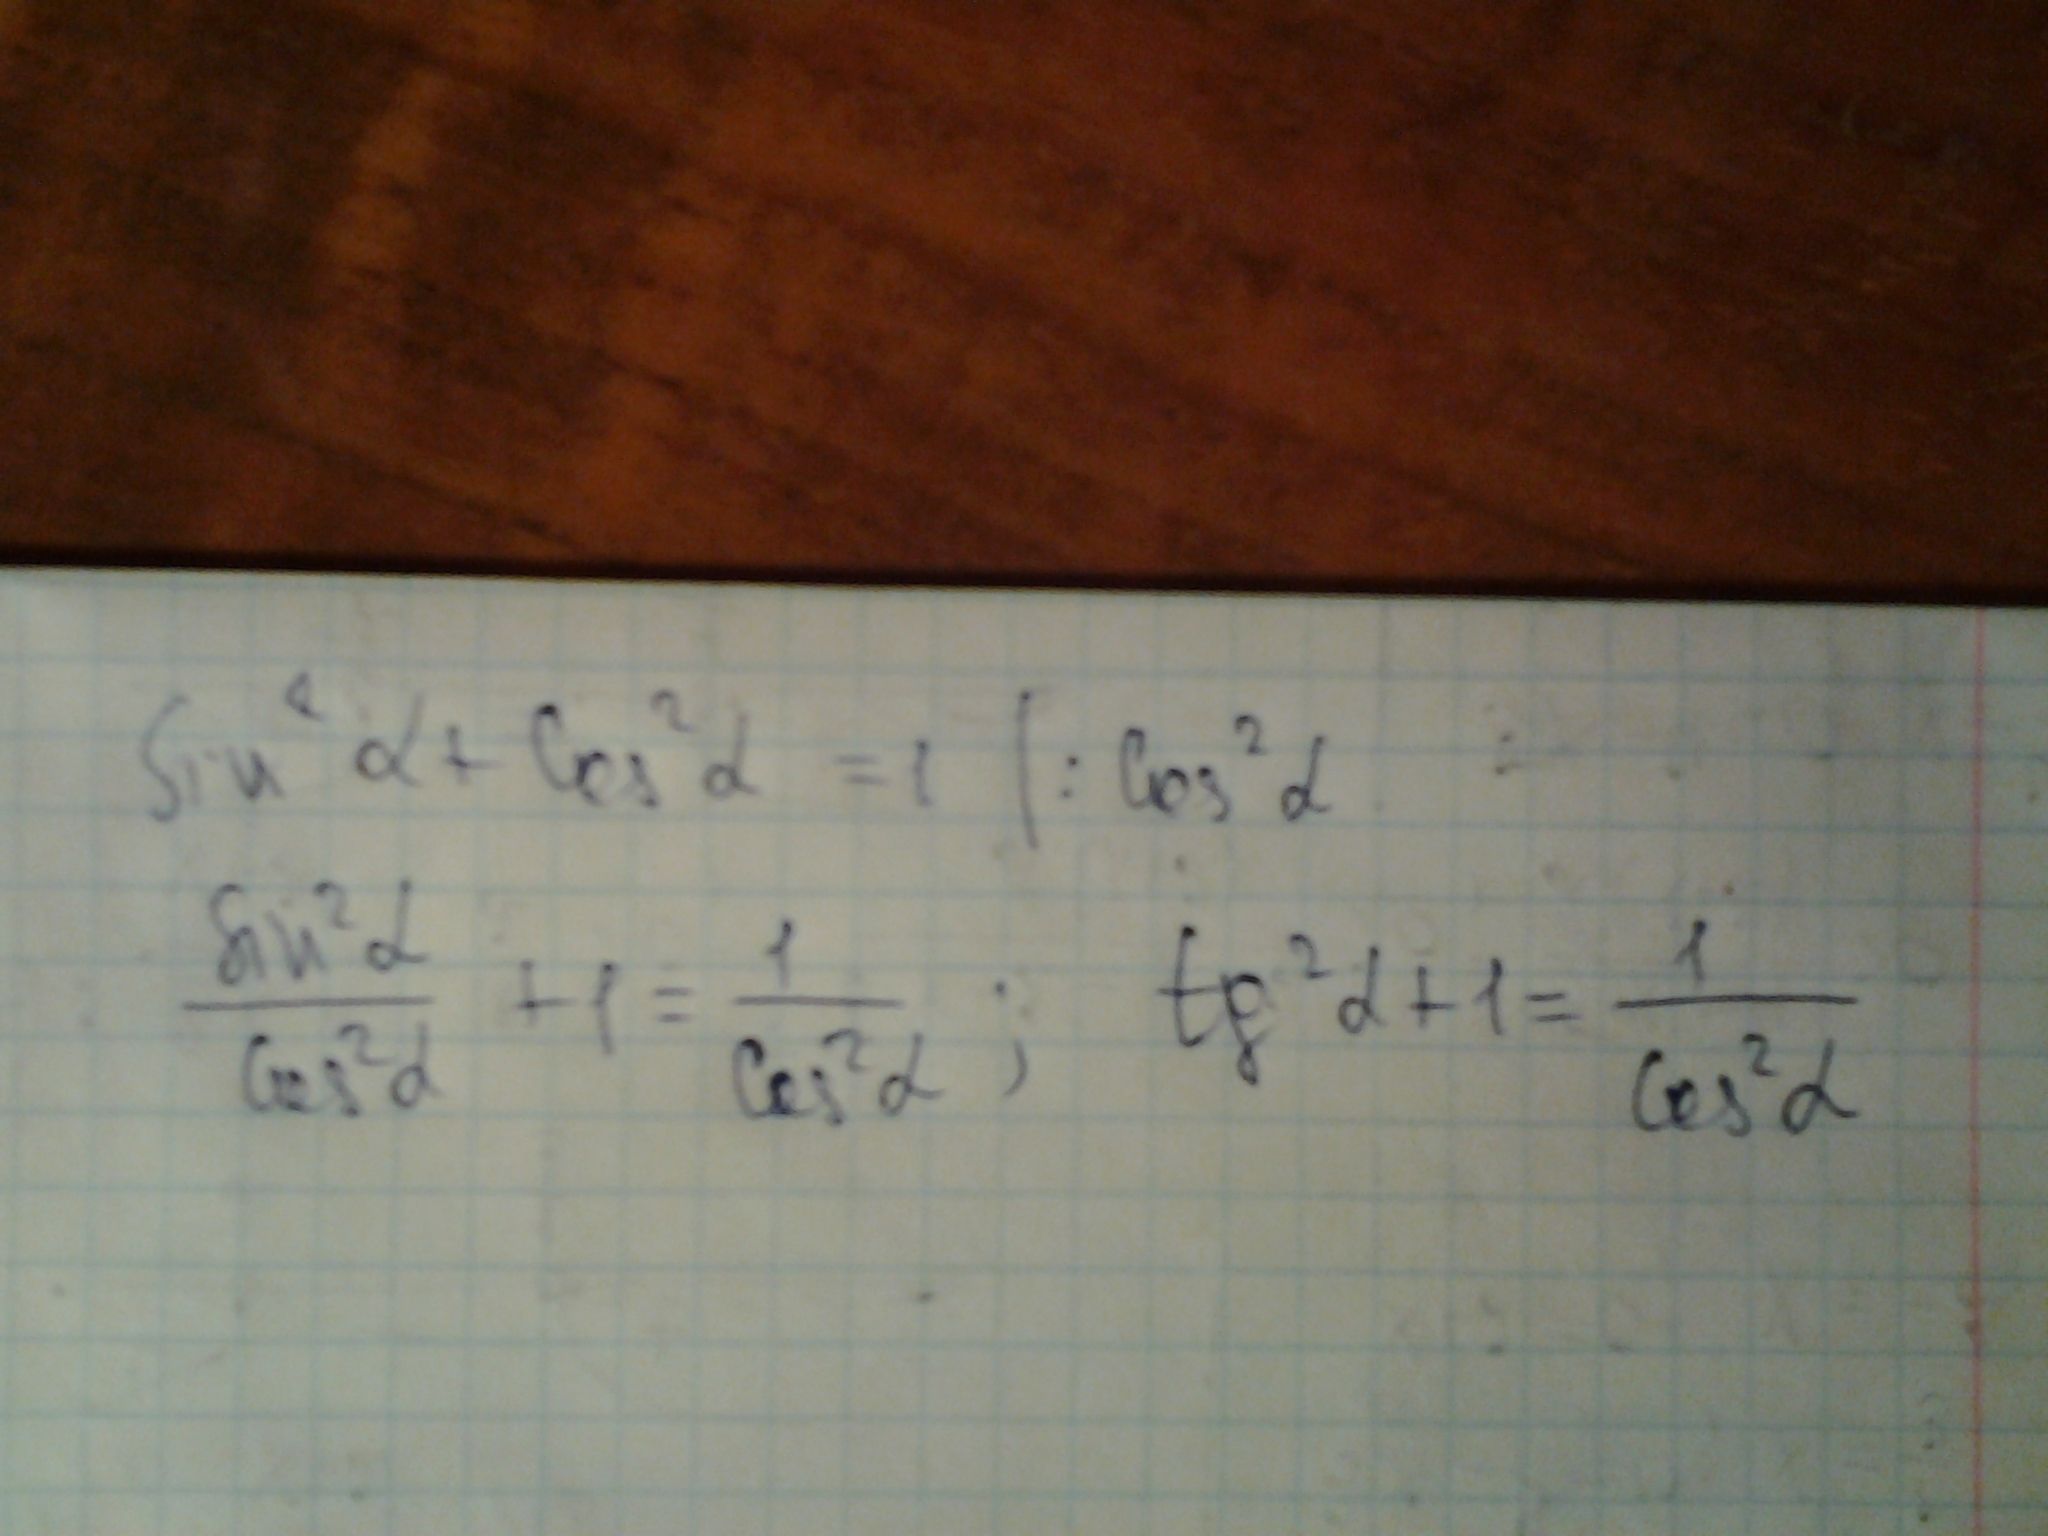 sin²α + cos²α = 1 | : cos²α
sin²α/cos²α + 1 = 1/cos²α ; tg²α + 1 = 1/cos²α